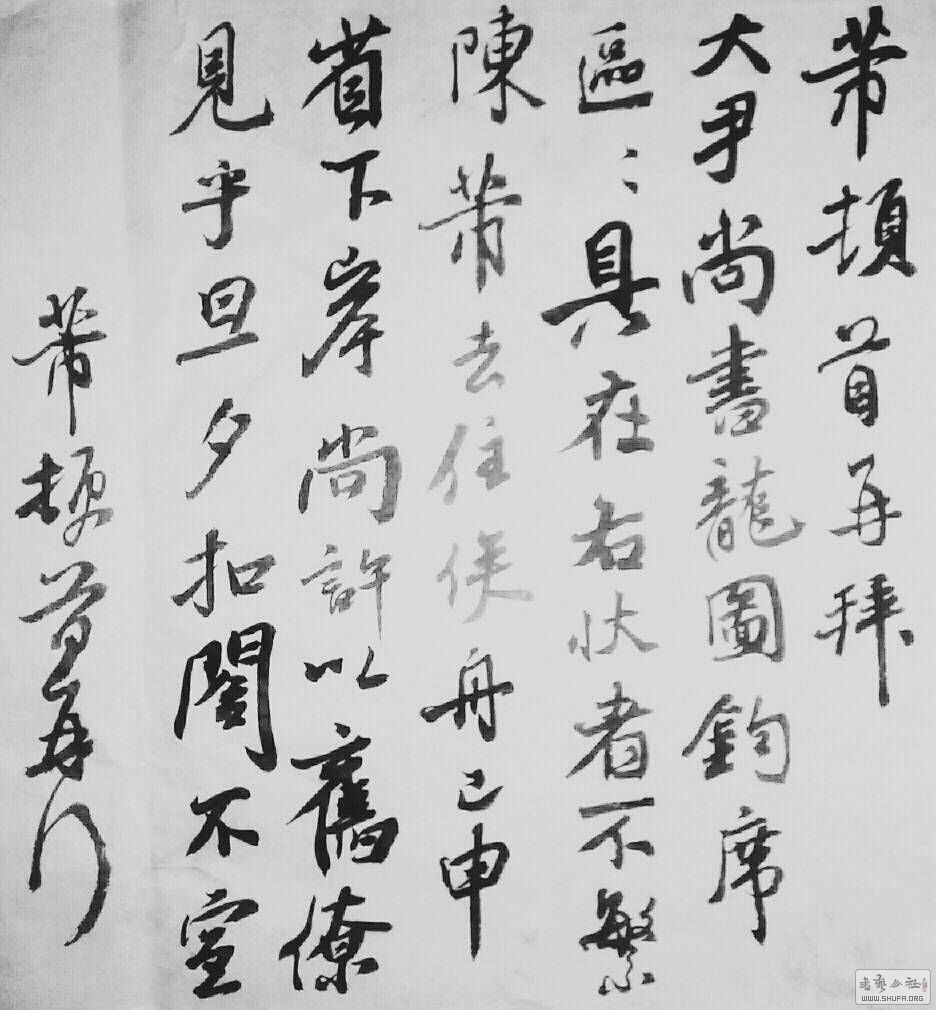 芾頓首再拜
大尹尚書龍圖鈞席
區〻具在右狀者不繁
陳芾去住俟舟已申
省下岸尚許以舊僚
見乎旦夕扣閽不宣
芾頓首再行
书艺公社
WWW.SHUFA.ORG